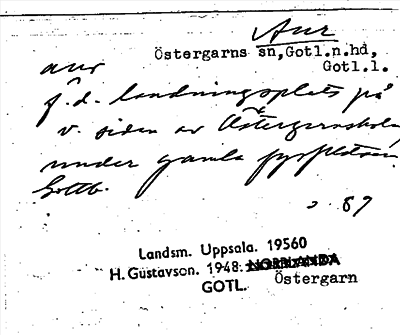 Aur
Östergarns sn, Gotl.n.hd,
Gotl.l.
aur
f.d. landningsplats på
v. siden av Östergarnsholm
under gamla fyrplatsen.
Gotlb.
s 89
Landsm. Uppsala. 19560
H. Gustavson. 1948. NORRLANDA
GOTL. Östergarn